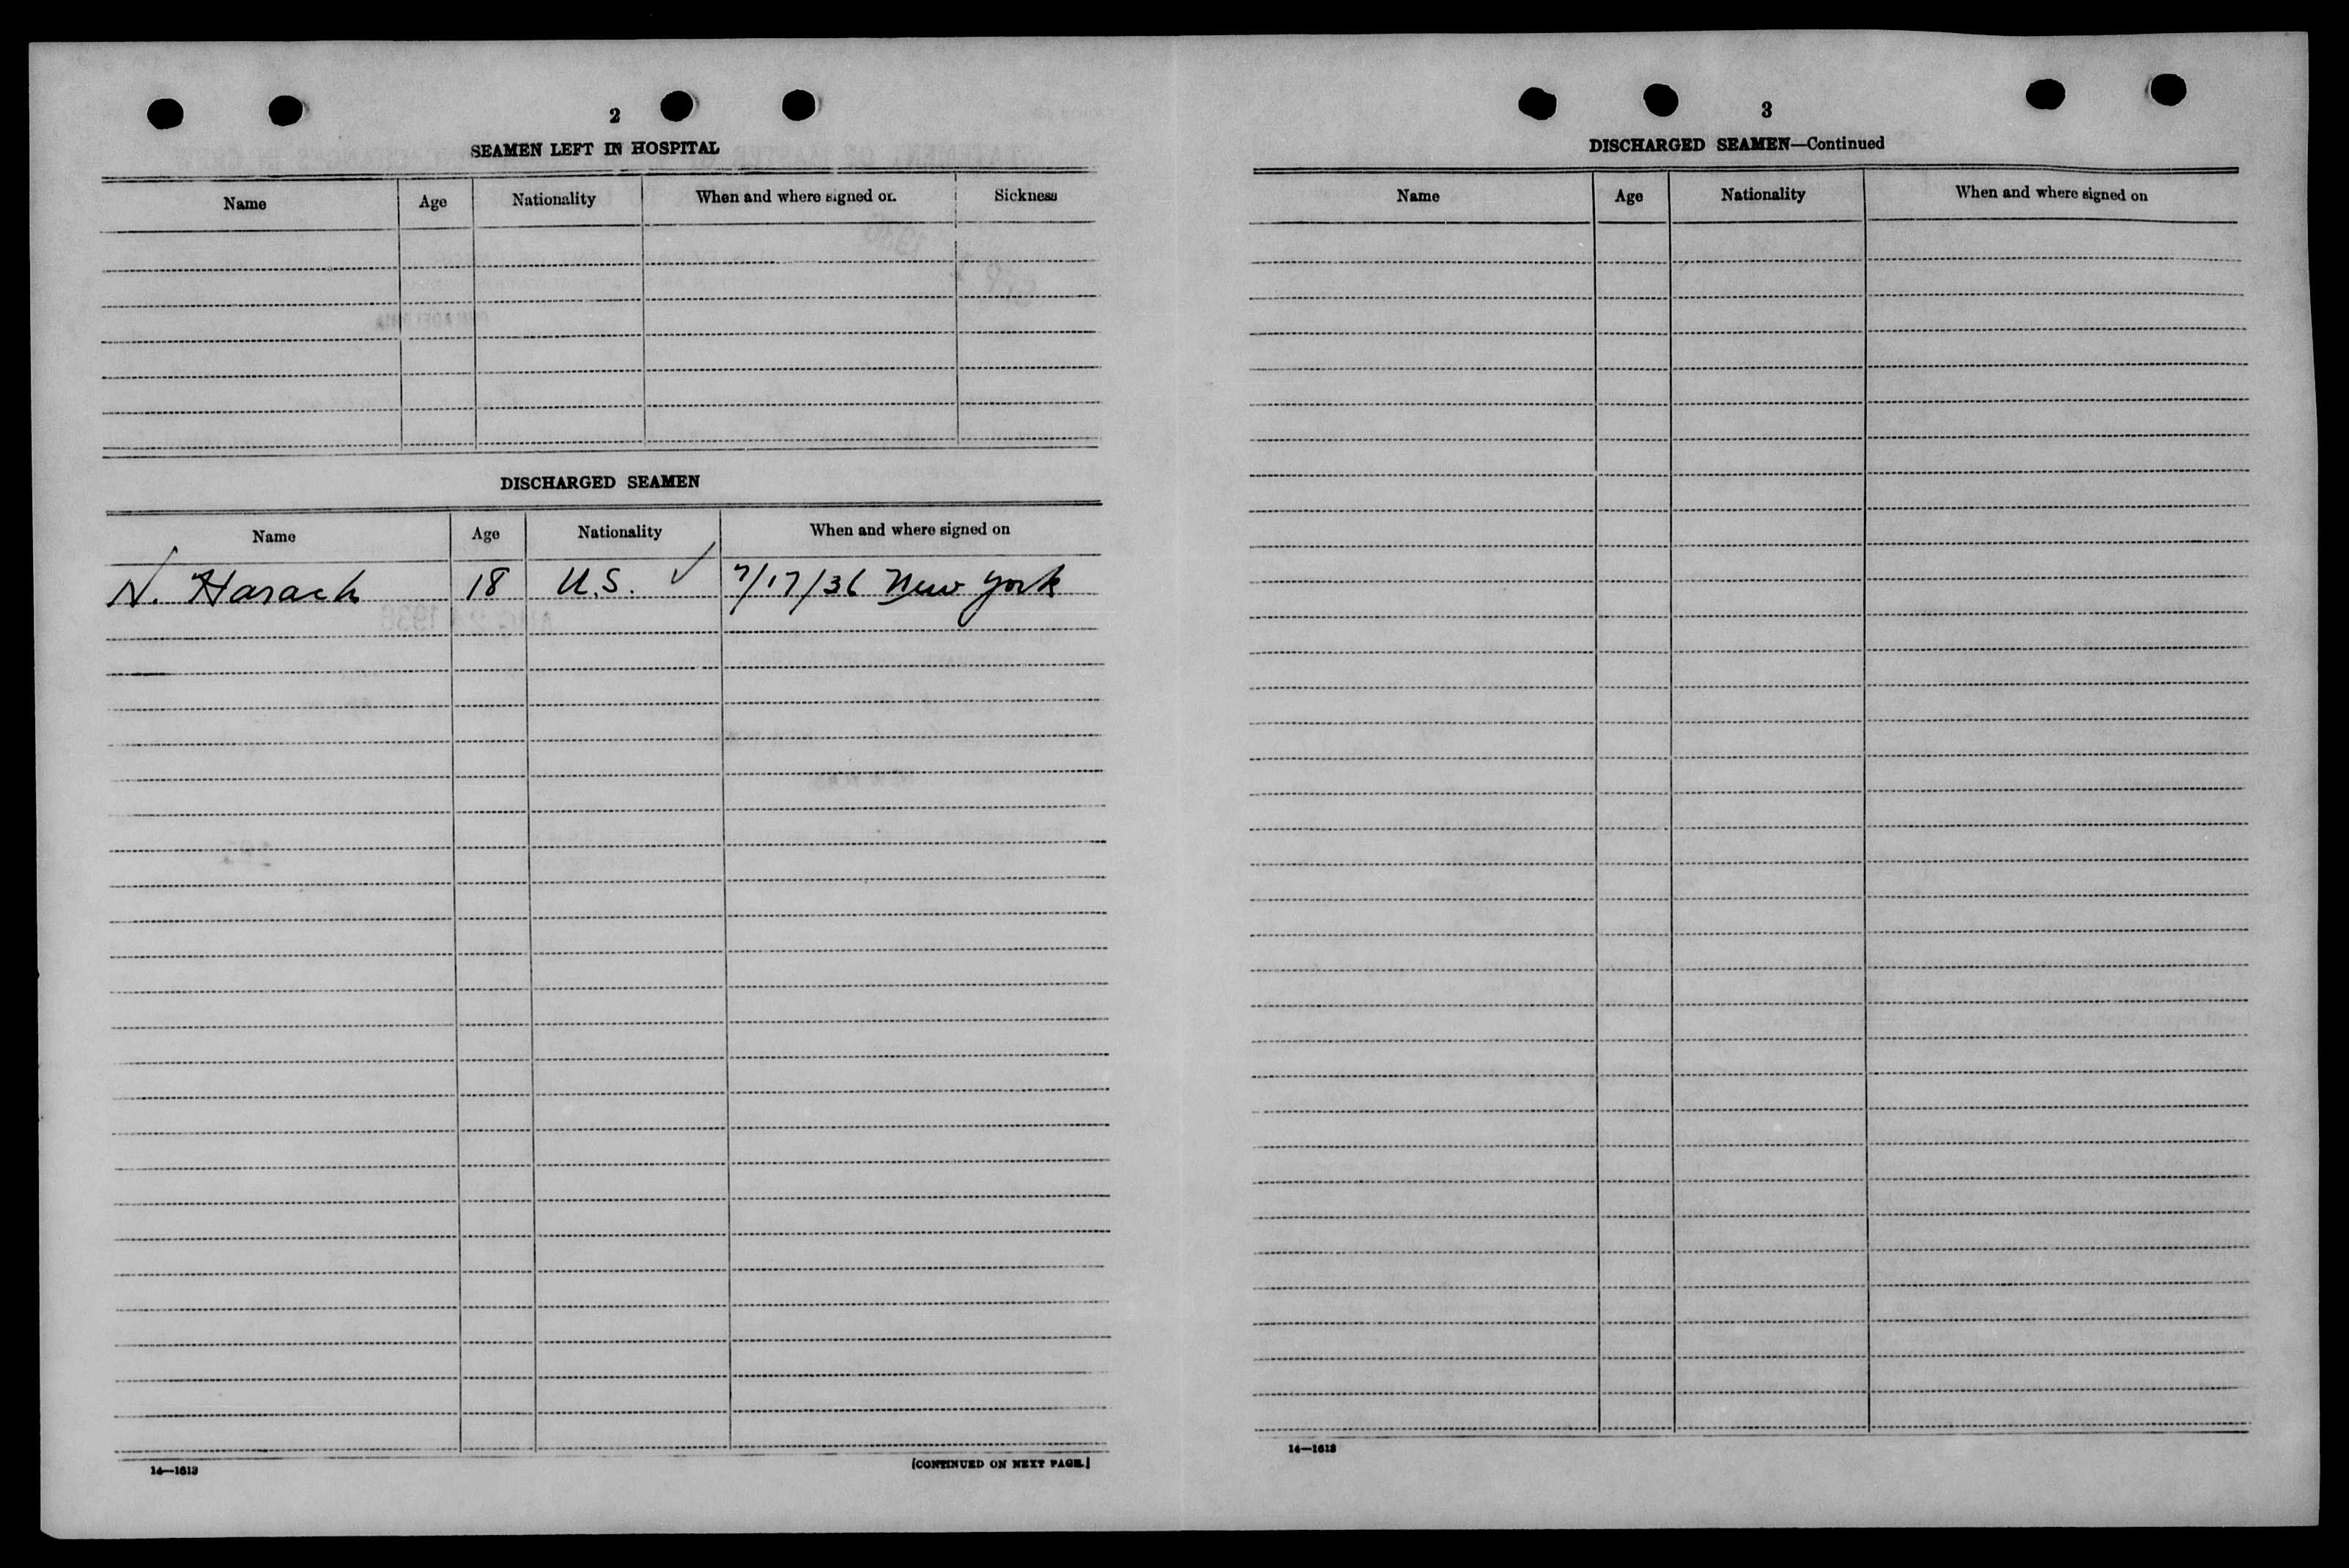 2
SEAMEN LEFT IN HOSPITAL
Name Age Nationality When and where signed on Sickness
DISCHARGED SEAMEN
Name Age Nationality When and where signed on
N. Harach 18 U.S. ✓ 7/17/36 New York
14—1613
[CONTINUED ON NEXT PAGE.]
3
DISCHARGED SEAMEN—Continued
Name Age Nationality When and where signed on
14—1613